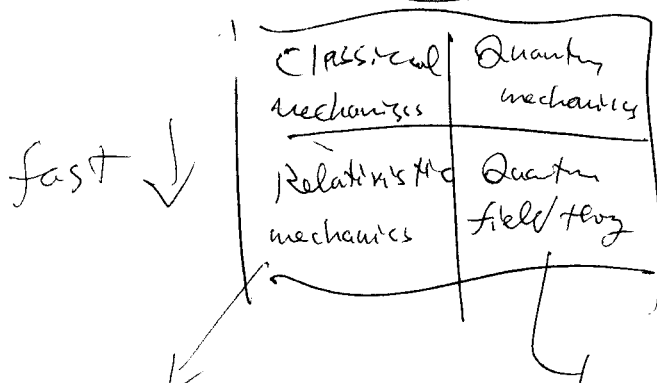 Classical
mechanics
Quantum
mechanics
fast ↓
Relativistic
mechanics
Quantum
field theory